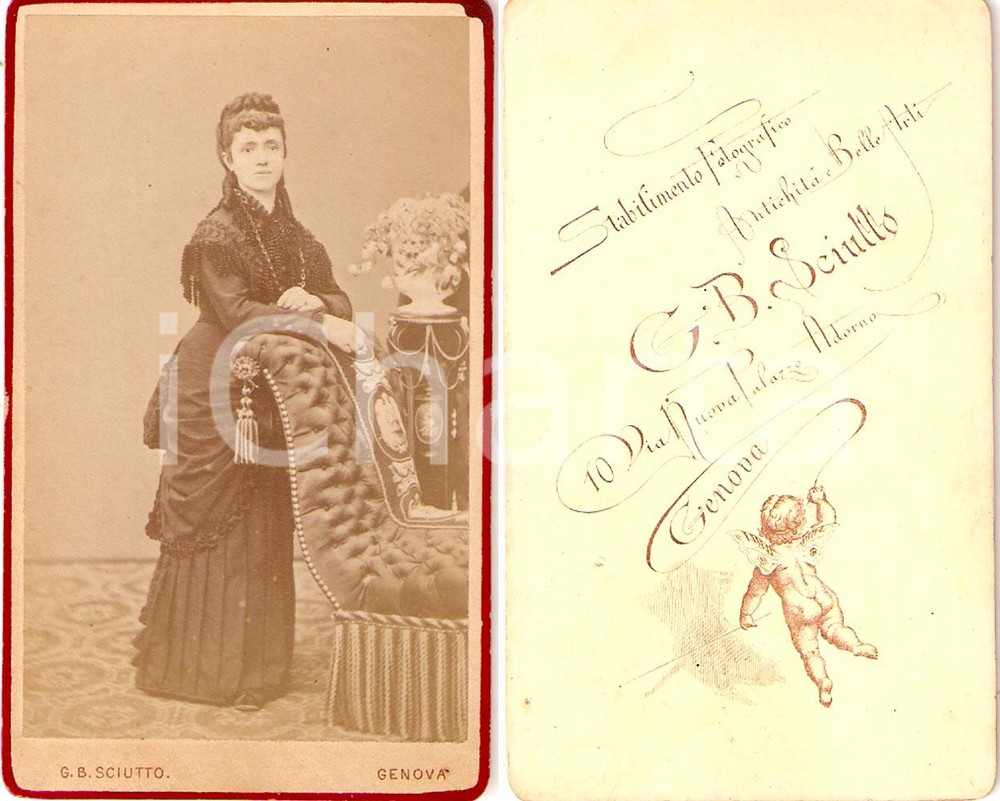 G. B. SCIUTTO. GENOVA
Stabilimento Fotografico
Antichità e Belle Arti
G. B. Sciutto
10 Via Nuova Palazzo Adorno
Genova
iCharta